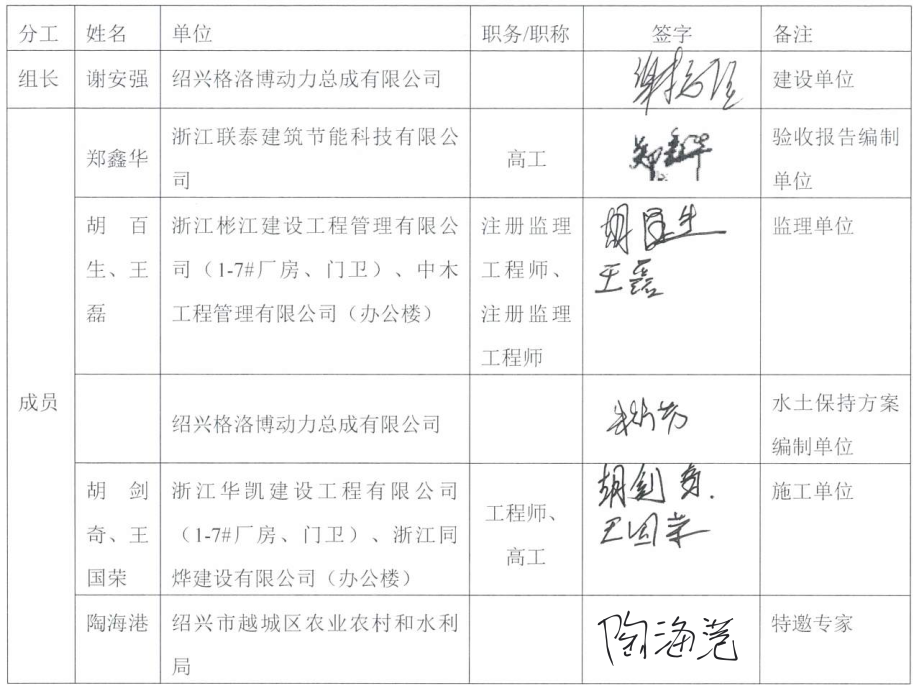 分工 姓名 单位 职务/职称 签字 备注
组长 谢安强 绍兴格洛博动力总成有限公司 建设单位
成员
郑鑫华 浙江联泰建筑节能科技有限公司 高工 郑鑫华 验收报告编制单位
胡百生、王磊 浙江彬江建设工程管理有限公司（1-7#厂房、门卫）、中木工程管理有限公司（办公楼） 注册监理工程师、注册监理工程师 胡百生 王磊 监理单位
绍兴格洛博动力总成有限公司 水土保持方案编制单位
胡剑奇、王国荣 浙江华凯建设工程有限公司（1-7#厂房、门卫）、浙江同烨建设有限公司（办公楼） 工程师、高工 胡剑奇 王国荣 施工单位
陶海港 绍兴市越城区农业农村和水利局 陶海港 特邀专家